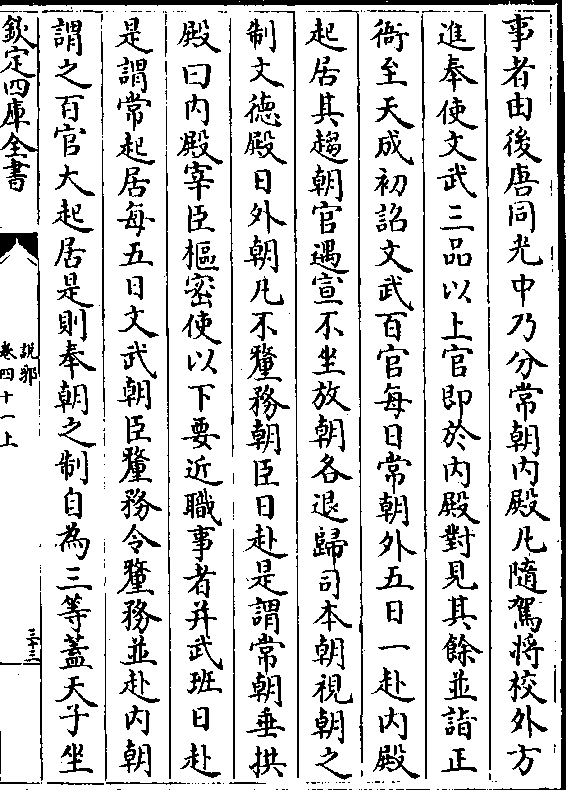 事者由後唐同光中乃分常朝内殿凡隨駕將校外方
進奉使文武三品以上官即於内殿對見其餘並詣正
衙至天成初詔文武百官每日常朝外五日一赴内殿
起居其趨朝官遇宣不坐放朝各退歸司本朝視朝之
制文德殿曰外朝凡不釐務朝臣日赴是謂常朝垂拱
殿曰内殿宰臣樞密使以下要近職事者并武班日赴
是謂常起居每五日文武朝臣釐務令釐務並赴内朝
謂之百官大起居是則奉朝之制自為三等蓋天子坐
欽定四庫全書
說郛
卷四十一上
三十三